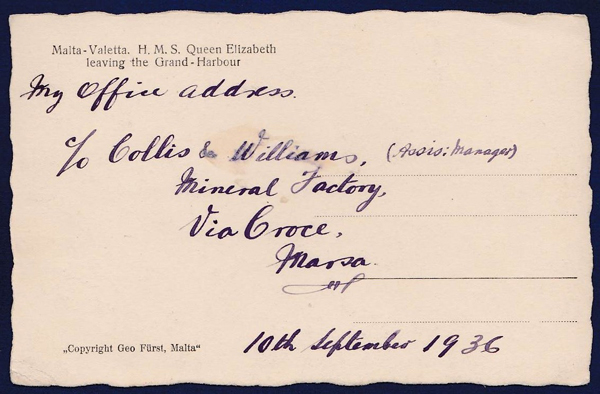 Malta-Valetta. H. M. S. Queen Elizabeth
leaving the Grand-Harbour
My Office address.
c/o Collis & Williams, (Assis: Manager)
Mineral Factory,
Via Croce,
Marsa.
10th September 1936
„Copyright Geo Fürst, Malta“